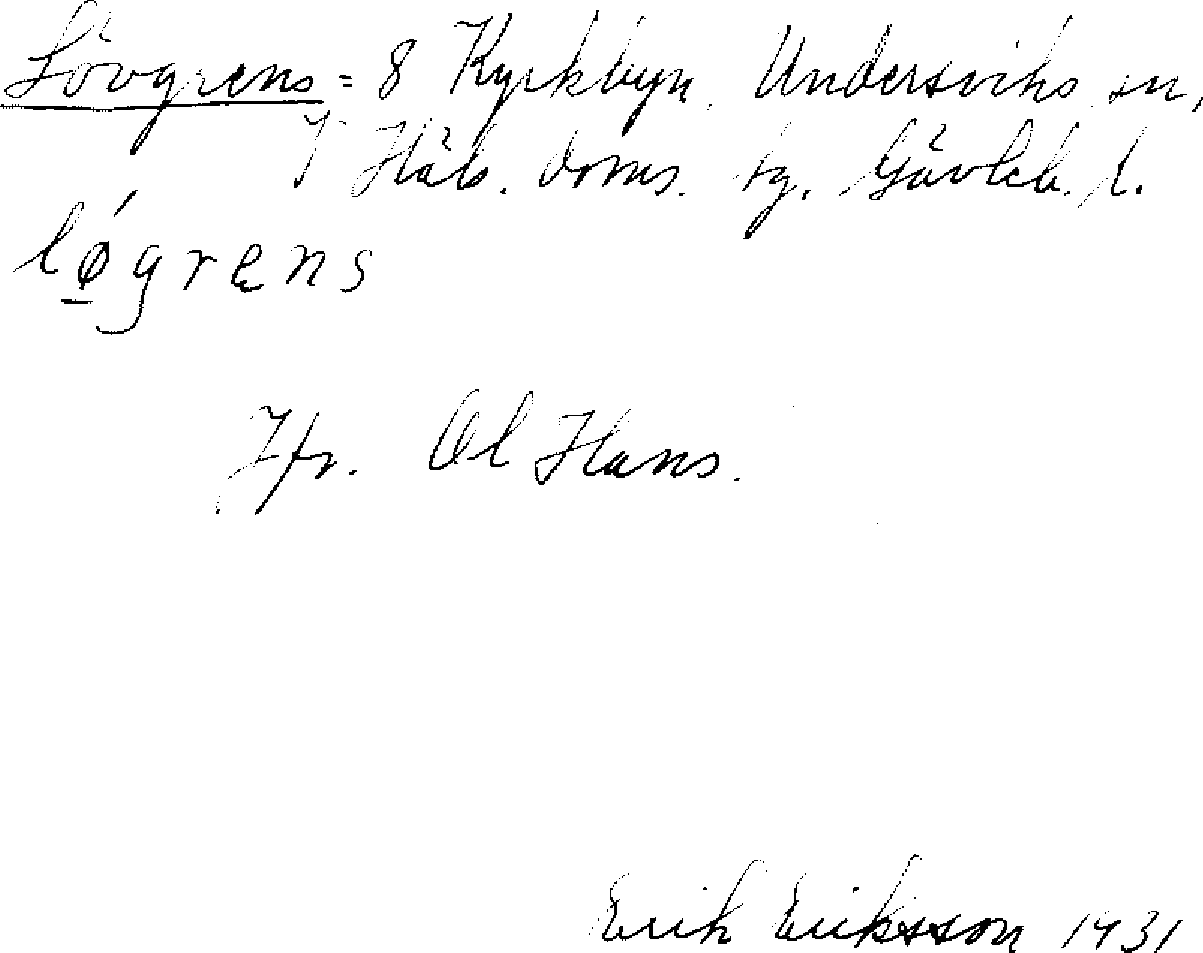 Lövgrens = 8 Kyrkbyn. Undersviks sn,
V Häls. doms. tg. Gävleb. l.
lǿgrens
Jfr. Ol Hans.
Erik Eriksson 1931